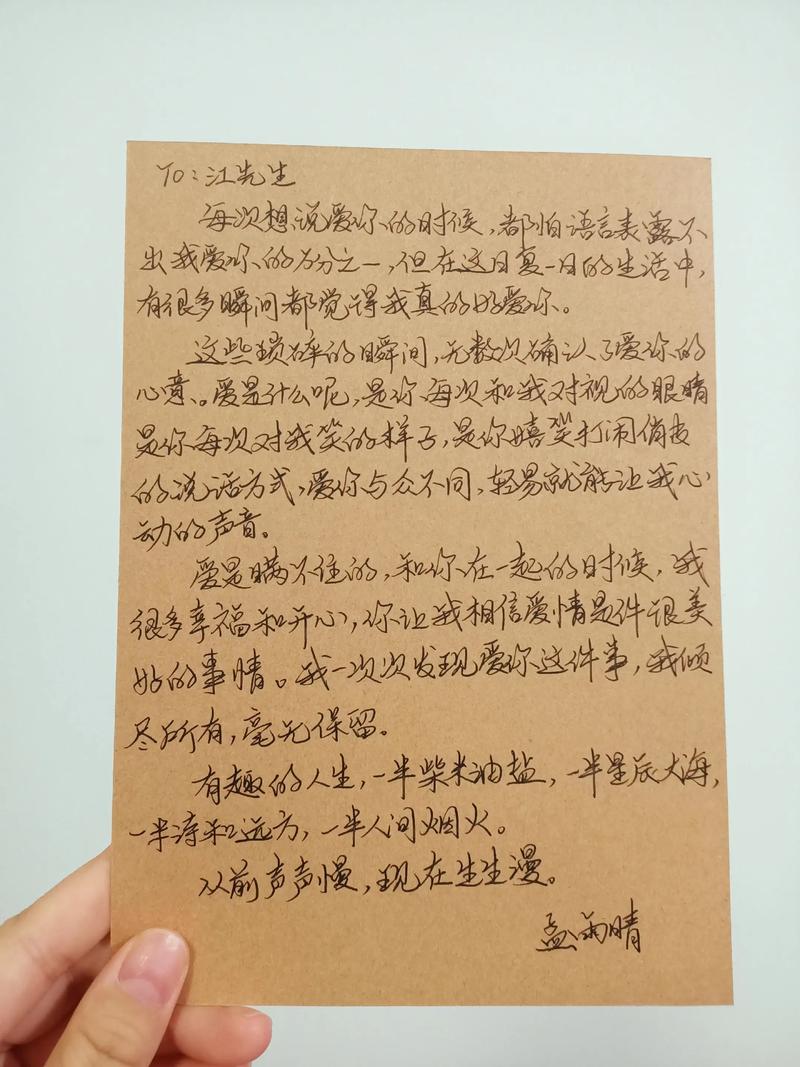 To:江先生
每次想说爱你的时候,都怕语言表露不
出我爱你的万分之一,但在这日复一日的生活中,
有很多瞬间都觉得我真的好爱你。
这些琐碎的瞬间,无数次确认了爱你的
心意。爱是什么呢,是你每次和我对视的眼睛
是你每次对我笑的样子,是你嬉笑打闹俏皮
的说话方式,爱你与众不同,轻易就能让我心
动的声音。
爱是瞒不住的,和你在一起的时候,我
很多幸福和开心,你让我相信爱情是件很美
好的事情。我一次次发现爱你这件事,我倾
尽所有,毫无保留。
有趣的人生,一半柴米油盐,一半星辰大海,
一半诗和远方,一半人间烟火。
从前声声慢,现在生生漫。
孟雨晴